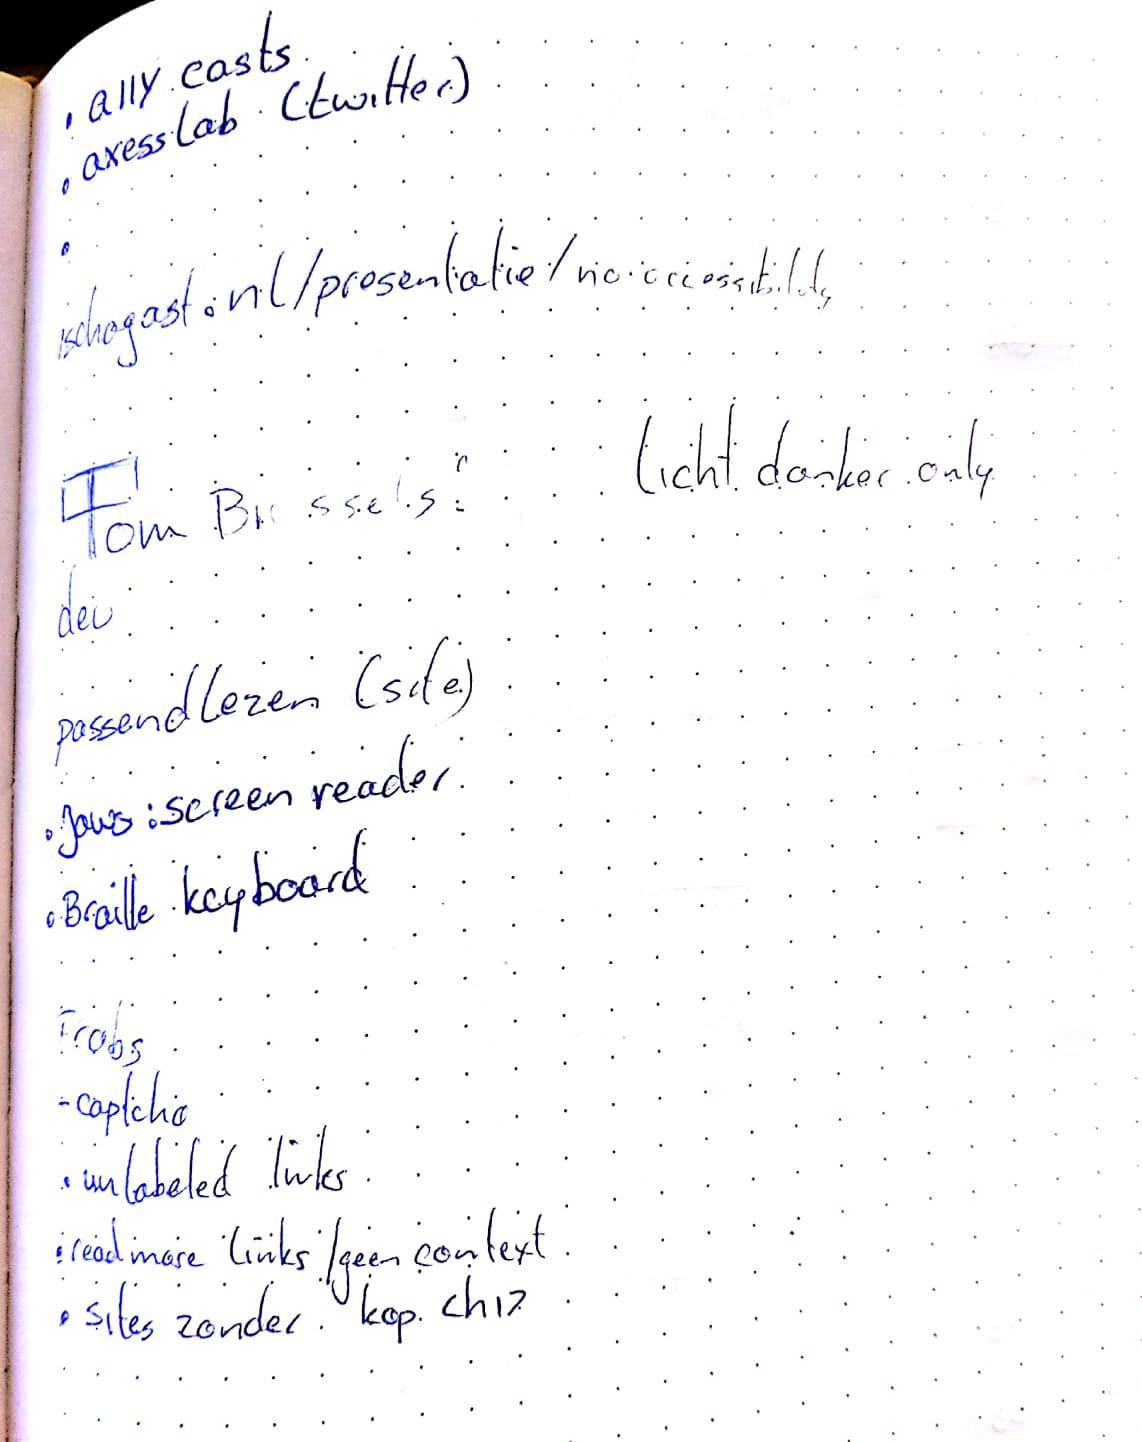 • a11y casts
• axesslab (twitter)
•
schogast.nl/presentatie/
licht donker only
Tom Brussels:
dev
passend lezen (site)
• Jaws: screen reader
• Braille keyboard
- captcha
• unlabeled links
• read more links / geen context
• sites zonder kop.